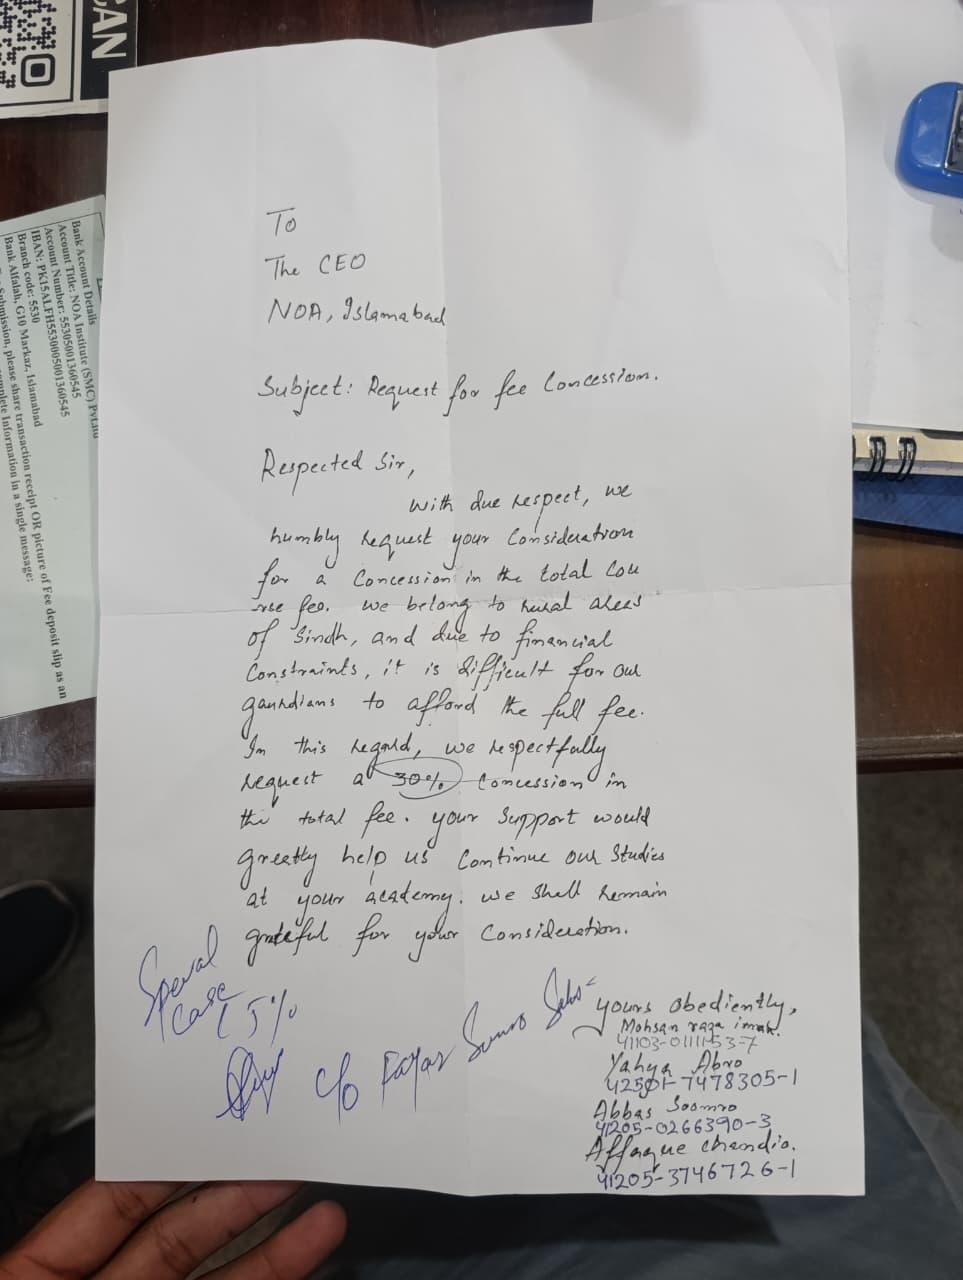 CAN
Bank Account Details
Account Title: NOA Institute (SMC) Pvt.Ltd
Account Number: 55305001360545
IBAN: PK15ALFH5530005001360545
Branch code: 5530
Bank Alfalah, G10 Markaz, Islamabad
Submission, please share transaction receipt OR picture of Fee deposit slip as an
complete Information in a single message:
To
The CEO
NOA, Islamabad
Subject: Request for fee Concession.
Respected Sir,
With due respect, we
humbly request your Consideration
for a Concession in the total Cou
rse fee. we belong to rural areas
of Sindh, and due to financial
Constraints, it is difficult for our
gaurdians to afford the full fee.
In this regard, we respectfully
request a 30% Concession in
the total fee. your Support would
greatly help us Continue our Studies
at your academy. we shall remain
grateful for your Consideration.
Special
Case
15%
c/o Fayaz Soomro Sahb
yours obediently,
Mohsan raza
41103-0111153-7
Yahya Abro
42501-7478305-1
Abbas Soomro
41205-0266390-3
Affaque chandio.
41205-3746726-1